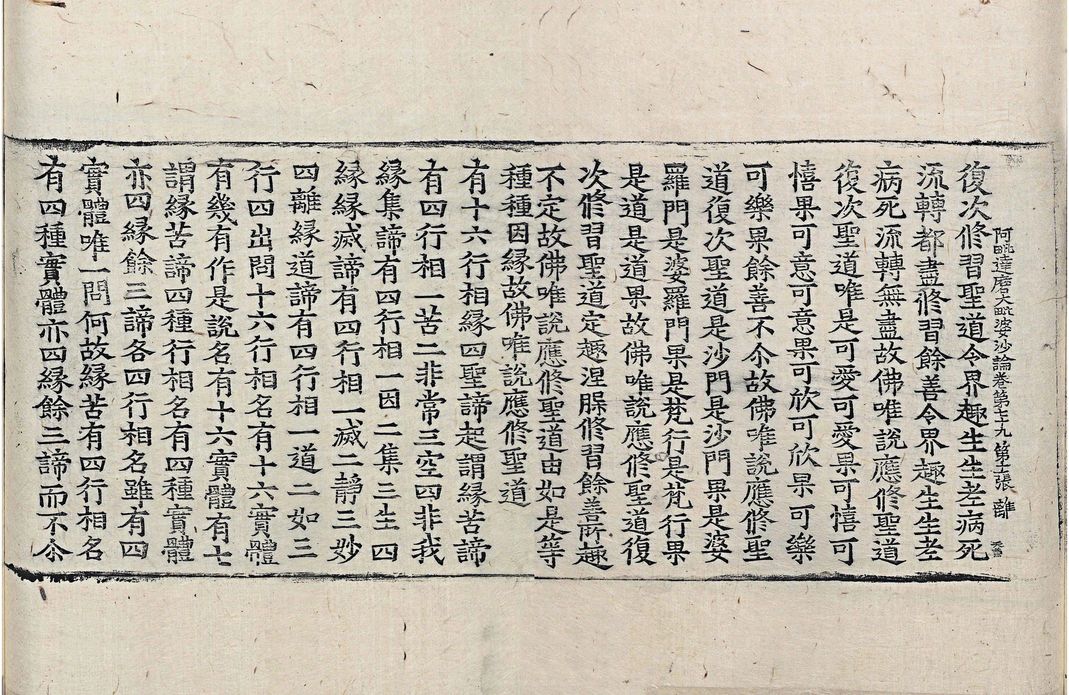 阿毗達磨大毗婆沙論卷第七十九 第張 離
復次修習聖道令界趣生生老病死
流轉都盡修習餘善令界趣生生老
病死流轉無盡故佛唯說應修聖道
復次聖道唯是可愛可愛果可憘可
憘果可意可意果可欣可欣果可樂
可樂果餘善不尒故佛唯說應修聖
道復次聖道是沙門是沙門果是婆
羅門是婆羅門果是梵行是梵行果
是道是道果故佛唯說應修聖道復
次修習聖道定趣涅槃修習餘善所趣
不定故佛唯說應修聖道由如是等
種種因緣故佛唯說應修聖道
有十六行相緣四聖諦起謂緣苦諦
有四行相一苦二非常三空四非我
緣集諦有四行相一因二集三生四
緣緣滅諦有四行相一滅二靜三妙
四離緣道諦有四行相一道二如三
行四出問十六行相名有十六實體
有幾有作是說名有十六實體有七
謂緣苦諦四種行相名有四種實體
亦四緣餘三諦各四行相名雖有四
實體唯一問何故緣苦有四行相名
有四種實體亦四緣餘三諦而不尒